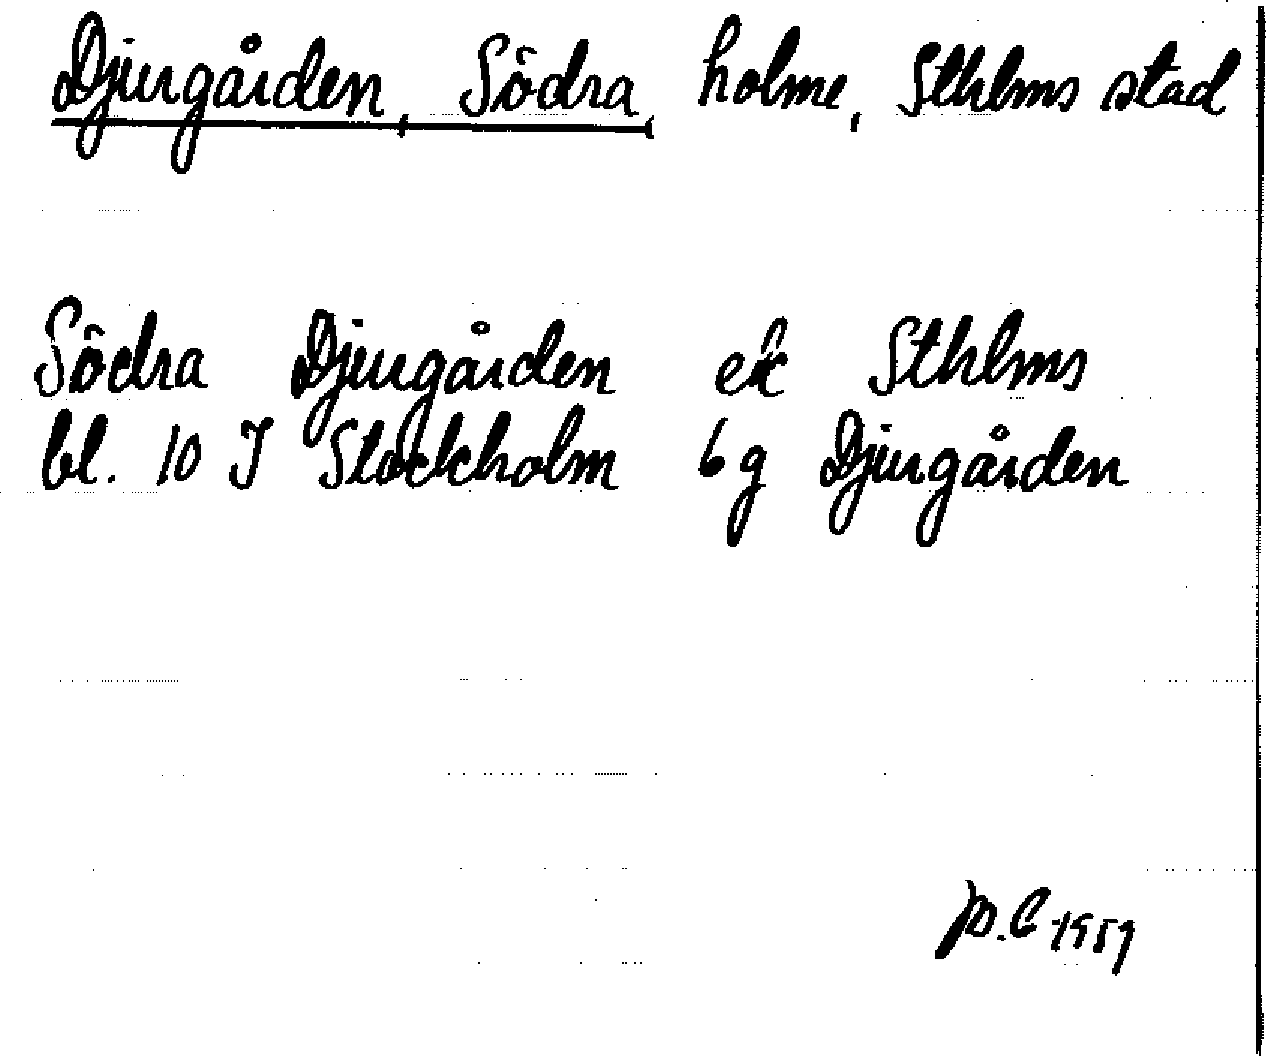 Djurgården, Södra, holme, Sthlms stad
Södra Djurgården ek Sthlms
bl. 10 I Stockholm 6 g Djurgården
P.C 1959